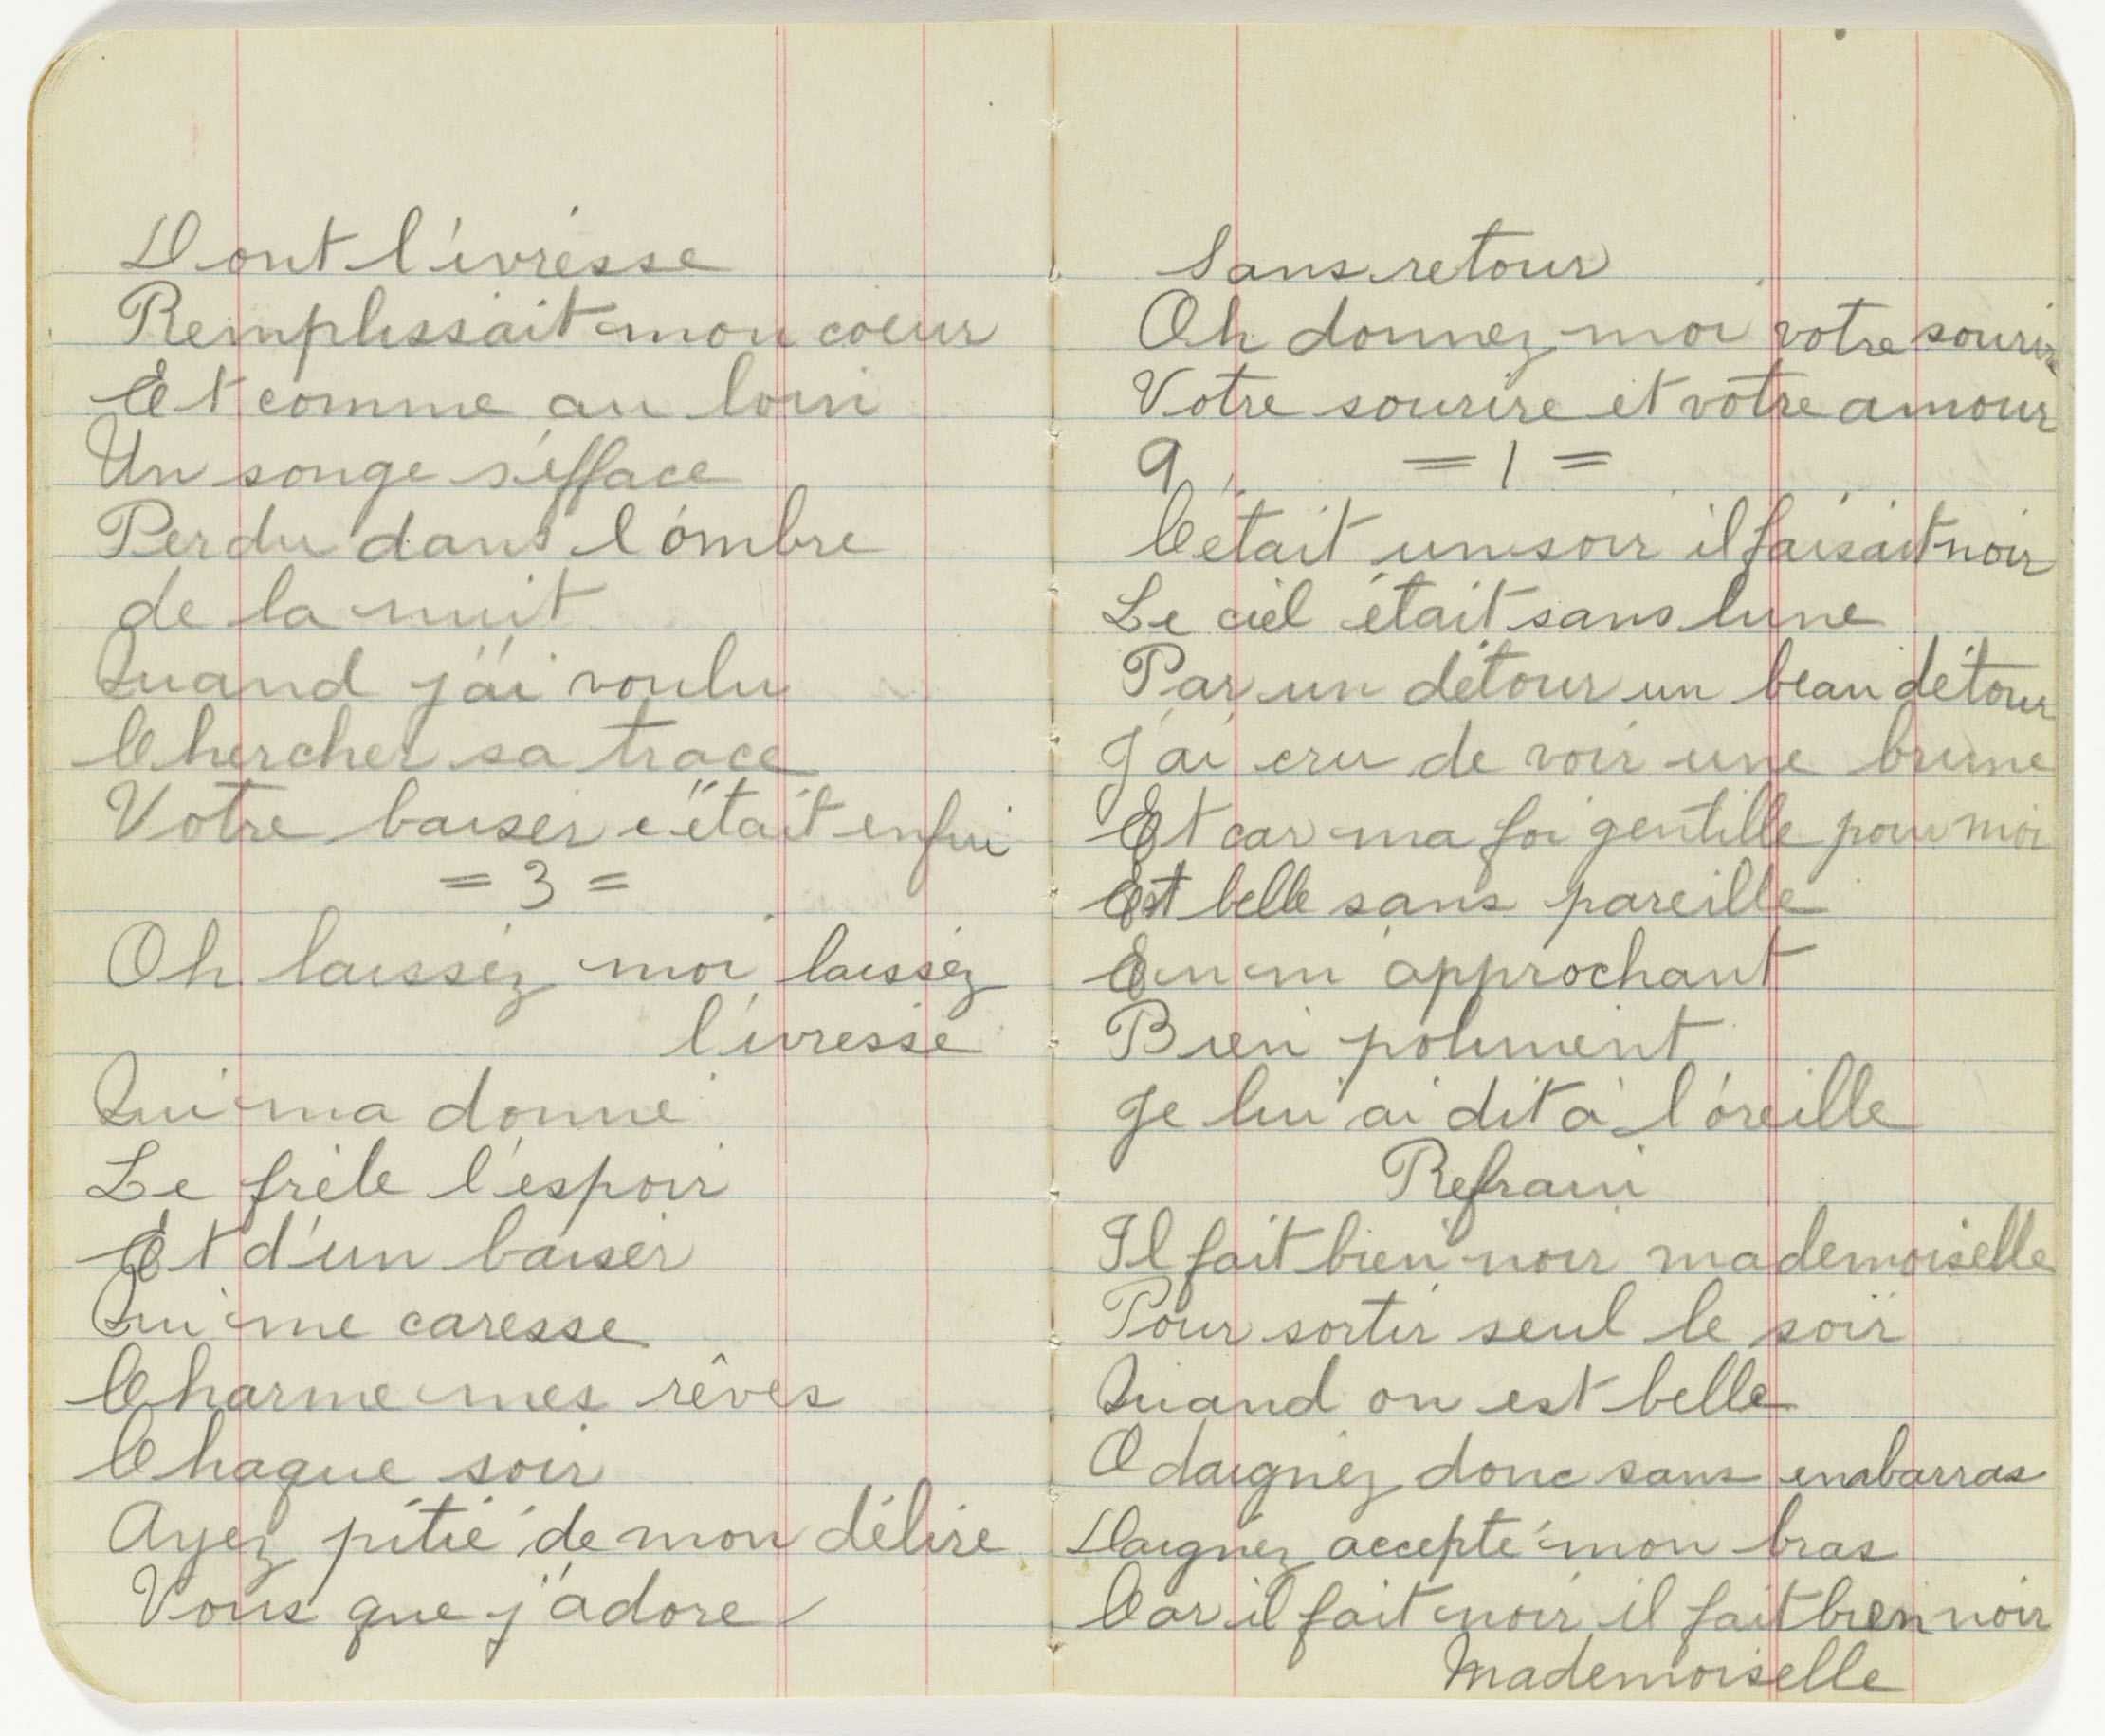 Dont l'ivresse
Remplissait mon coeur
Et comme au loin
Un songe s'efface
Perdu dans l'ombre
de la nuit
Quand j'ai voulu
Chercher sa trace
Votre baiser c'était enfui
= 3 =
Oh laissez moi laissez
l'ivresse
Qui ma donné
Le frêle l'espoir
Et d'un baiser
Qui me caresse
Charme mes rêves
Chaque soir
Ayez pitié de mon délire
Vous que j'adore
Sans retour
Oh donnez moi votre sourire
Votre sourire et votre amour
9 = 1 =
C'était un soir il faisait noir
Le ciel était sans lune
Par un détour un beau détour
J'ai cru de voir une brune
Et car ma foi gentille pour moi
Est belle sans pareille
En m'approchant
Bien poliment
Je lui ai dit à l'oreille
Refrain
Il fait bien noir mademoiselle
Pour sortir seul le soir
Quand on est belle
O daignez donc sans embarras
Daignez accepté mon bras
Car il fait noir il fait bien noir
Mademoiselle